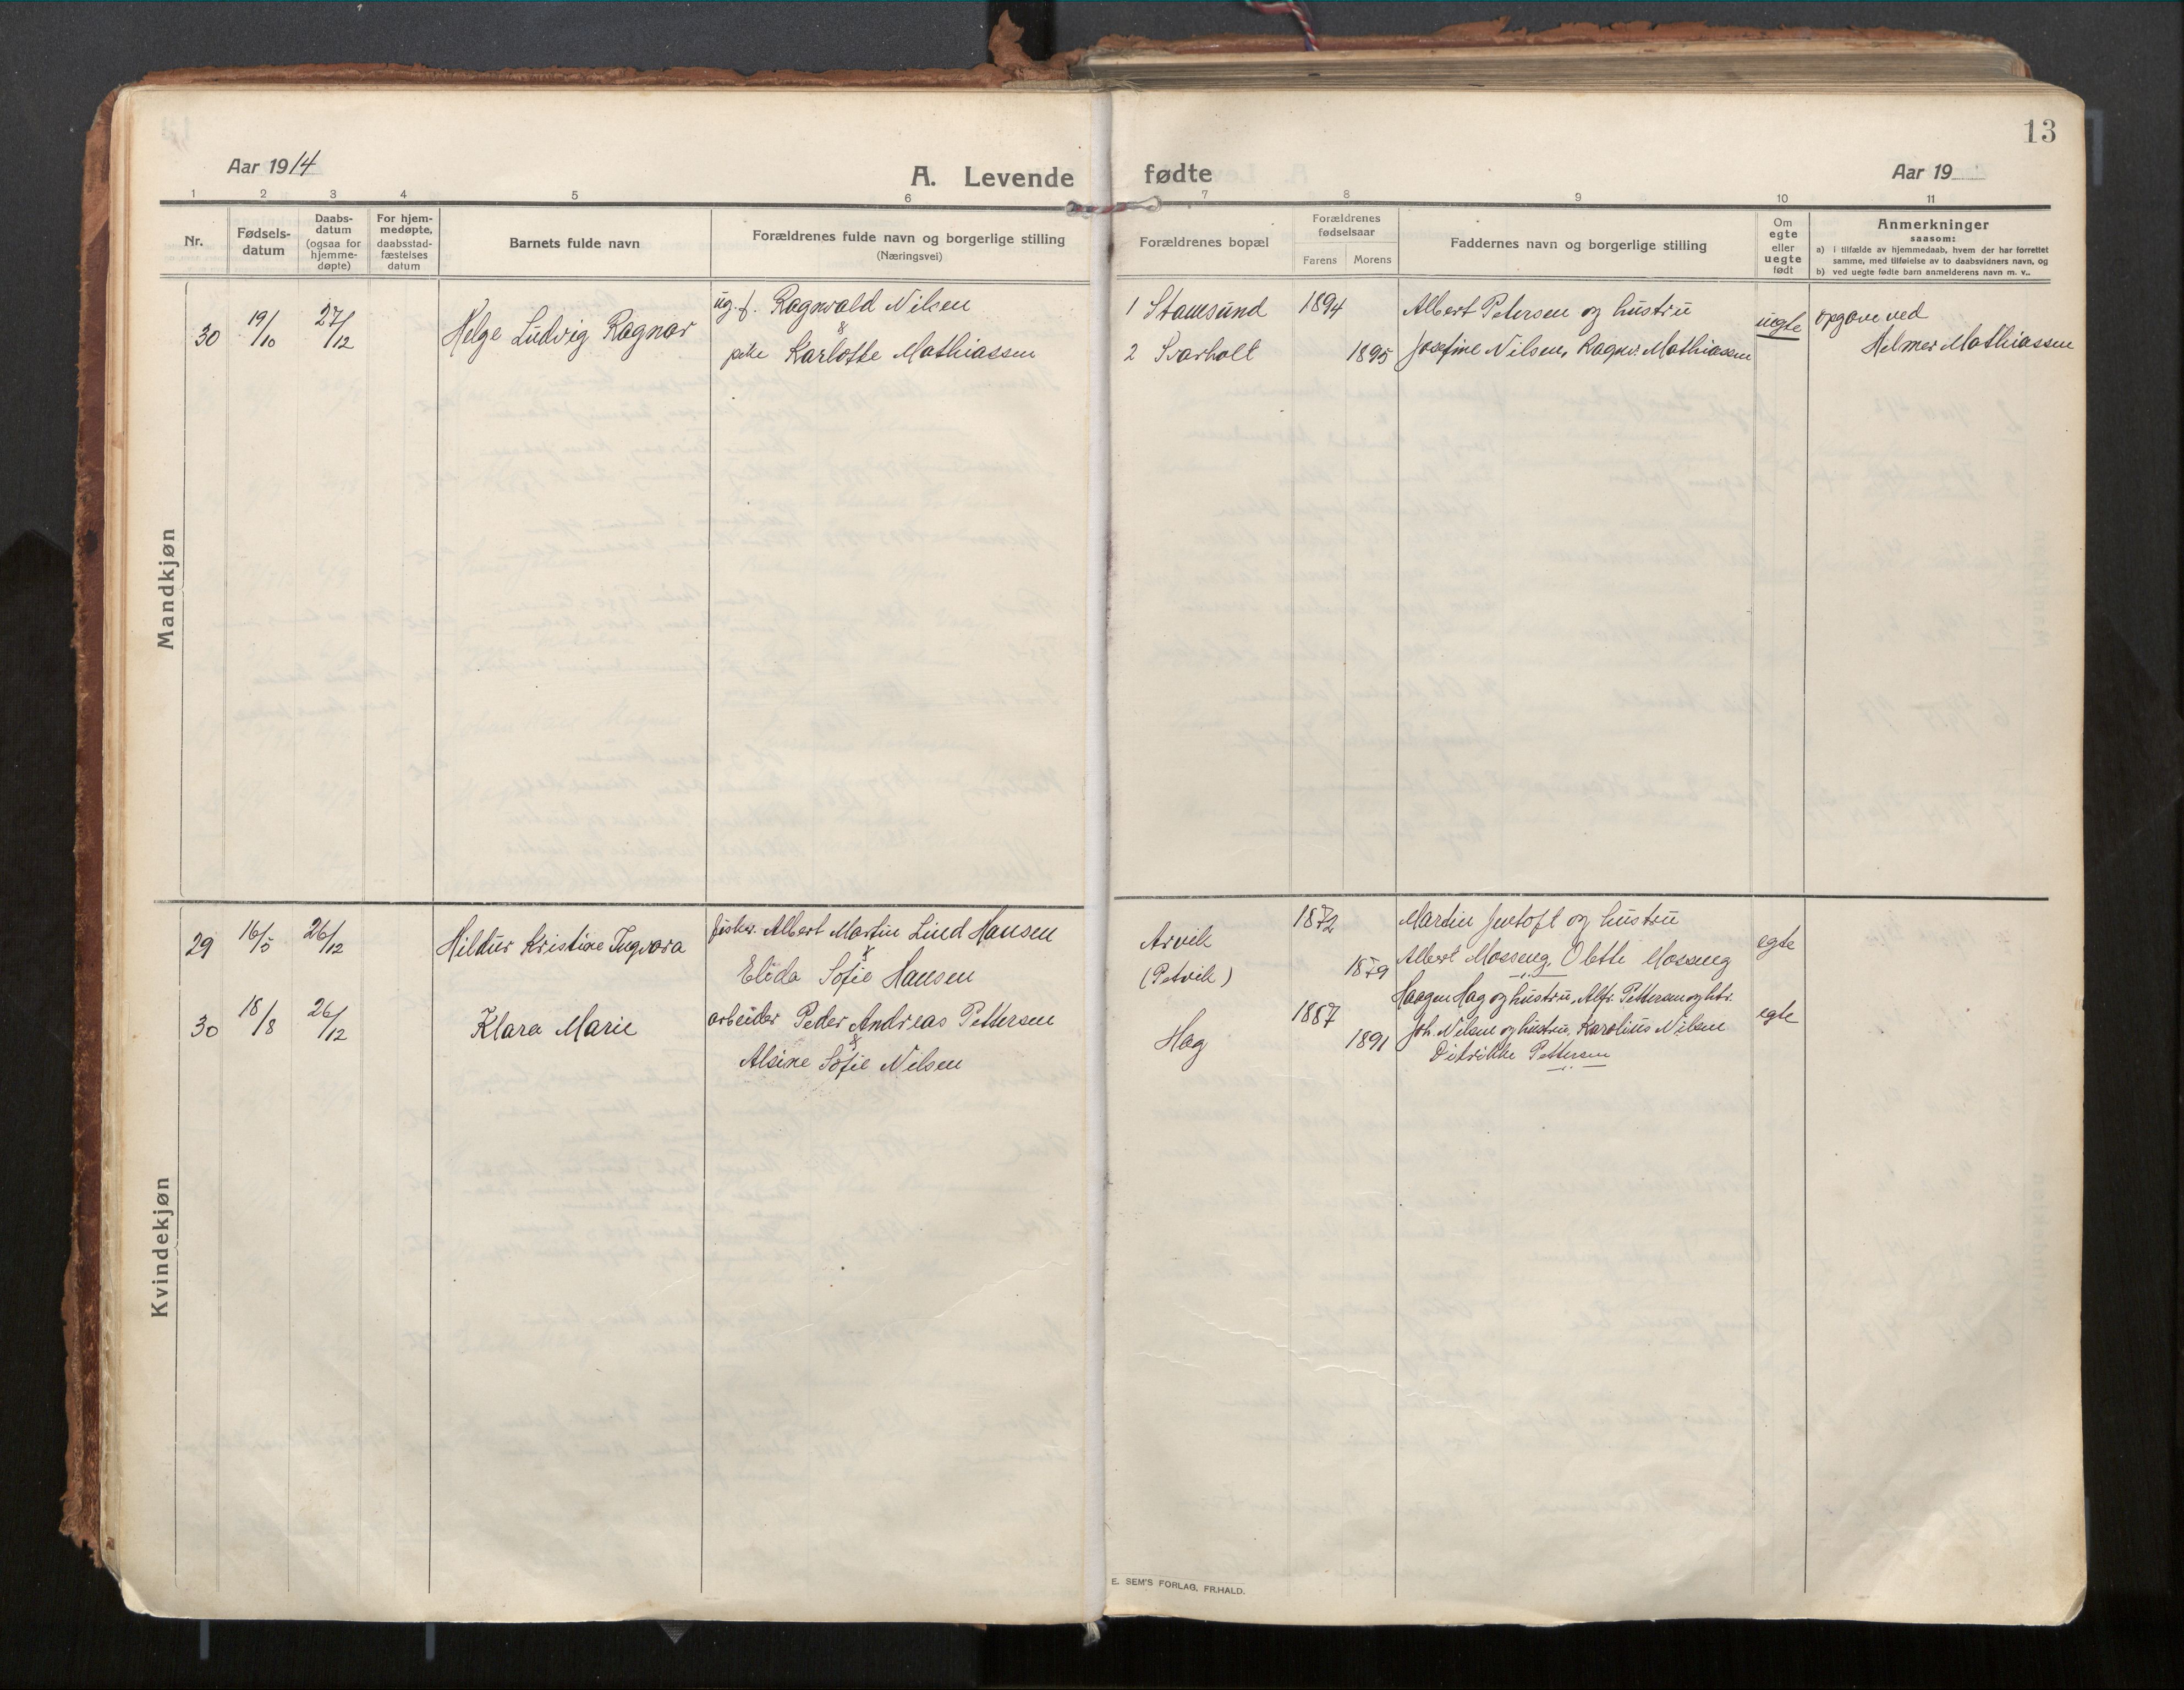 13
Aar 1914
A. Levende
fødte
Aar 19
1 2 3 4 5 6 7 8 9 10 11
Nr.
Fødsels-
datum
Daabs-
datum
(ogsaa for
hjemme-
døpte)
For hjem-
medøpte,
daabsstad-
fæstelses
datum
Barnets fulde navn
Forældrenes fulde navn og borgerlige stilling
(Næringsvei)
Forældrenes bopæl
Forældrenes
fødselsaar
Farens Morens
Faddernes navn og borgerlige stilling
Om
egte
eller
uegte
født
Anmerkninger
saasom:
a) i tilfælde av hjemmedaab, hvem der har forrettet
samme, med tilføielse av to daabsvidners navn, og
b) ved uegte fødte barn anmelderens navn m. v..
Mandkjøn
30 19/10 27/12 Helge Ludvig Ragnar
ug. f. Ragnvald Nilsen
&
pike Karlotte Mathiassen
1 Stamsund 1894
2 Svarholt 1895
Albert Petersen og hustru
Josefine Nilsen, Ragnv. Mathiassen
uegte
opgave ved
Helmer Mathiassen
Kvindekjøn
29 16/5 26/12 Hildur Kristine Ingvara
fisker Albert Martin Lind Hansen
&
Elida Sofie Hansen
Arvik
(Petvik)
1872
1879
Martin Jentoft og hustru
Albert Mosseng, Olette Mosseng
egte
30 18/8 26/12 Klara Marie
arbeider Peder Andreas Pettersen
&
Alsine Sofie Nilsen
Hag
1887
1891
Haagen Hag og hustru, Alfr. Pettersen og htr.
Joh. Nilsen og hustru, Karolius Nilsen
Didrikke Pettersen
egte
E. SEM'S FORLAG, FR.HALD.